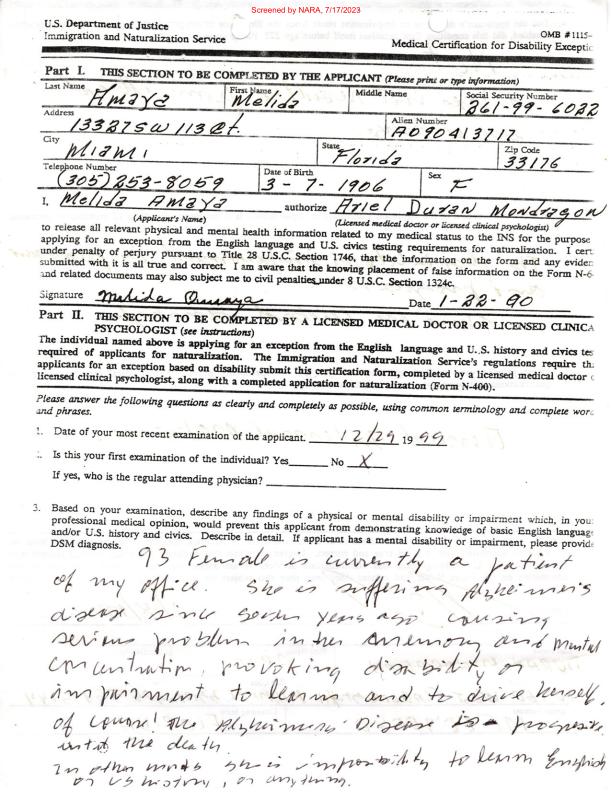 Screened by NARA, 7/17/2023
U.S. Department of Justice
Immigration and Naturalization Service
OMB #1115-
Medical Certification for Disability Exceptic
Part I. THIS SECTION TO BE COMPLETED BY THE APPLICANT (Please print or type information)
Last Name Amaya First Name Melida Middle Name Social Security Number 261-99-6022
Address 13327 SW 113 Ct. Alien Number A090413717
City Miami State Florida Zip Code 33176
Telephone Number (305) 253-8059 Date of Birth 3-7-1906 Sex F
I, Melida Amaya authorize Ariel Duran Mondragon
(Applicant's Name) (Licensed medical doctor or licensed clinical psychologist)
to release all relevant physical and mental health information related to my medical status to the INS for the purpose
applying for an exception from the English language and U.S. civics testing requirements for naturalization. I cert
under penalty of perjury pursuant to Title 28 U.S.C. Section 1746, that the information on the form and any eviden
submitted with it is all true and correct. I am aware that the knowing placement of false information on the Form N-6
and related documents may also subject me to civil penalties under 8 U.S.C. Section 1324c.
Signature Melida Amaya Date 1-22-90
Part II. THIS SECTION TO BE COMPLETED BY A LICENSED MEDICAL DOCTOR OR LICENSED CLINICA
PSYCHOLOGIST (see instructions)
The individual named above is applying for an exception from the English language and U.S. history and civics tes
required of applicants for naturalization. The Immigration and Naturalization Service's regulations require th
applicants for an exception based on disability submit this certification form, completed by a licensed medical doctor
licensed clinical psychologist, along with a completed application for naturalization (Form N-400).
Please answer the following questions as clearly and completely as possible, using common terminology and complete word
and phrases.
1. Date of your most recent examination of the applicant. 12/29 1999
Is this your first examination of the individual? Yes No X
If yes, who is the regular attending physician?
3. Based on your examination, describe any findings of a physical or mental disability or impairment which, in you
professional medical opinion, would prevent this applicant from demonstrating knowledge of basic English language
and/or U.S. history and civics. Describe in detail. If applicant has a mental disability or impairment, please provide
DSM diagnosis.
93 Female is currently a patient
of my office. She is suffering Alzheimer's
disease since seven years ago causing
serious problem in her memory and mental
concentration, provoking disability or
impairment to learns and to drive herself,
of course! the Alzheimers' Disease is progresive
until the death.
In other words she is impossibility to learn English
or US history, or anything.